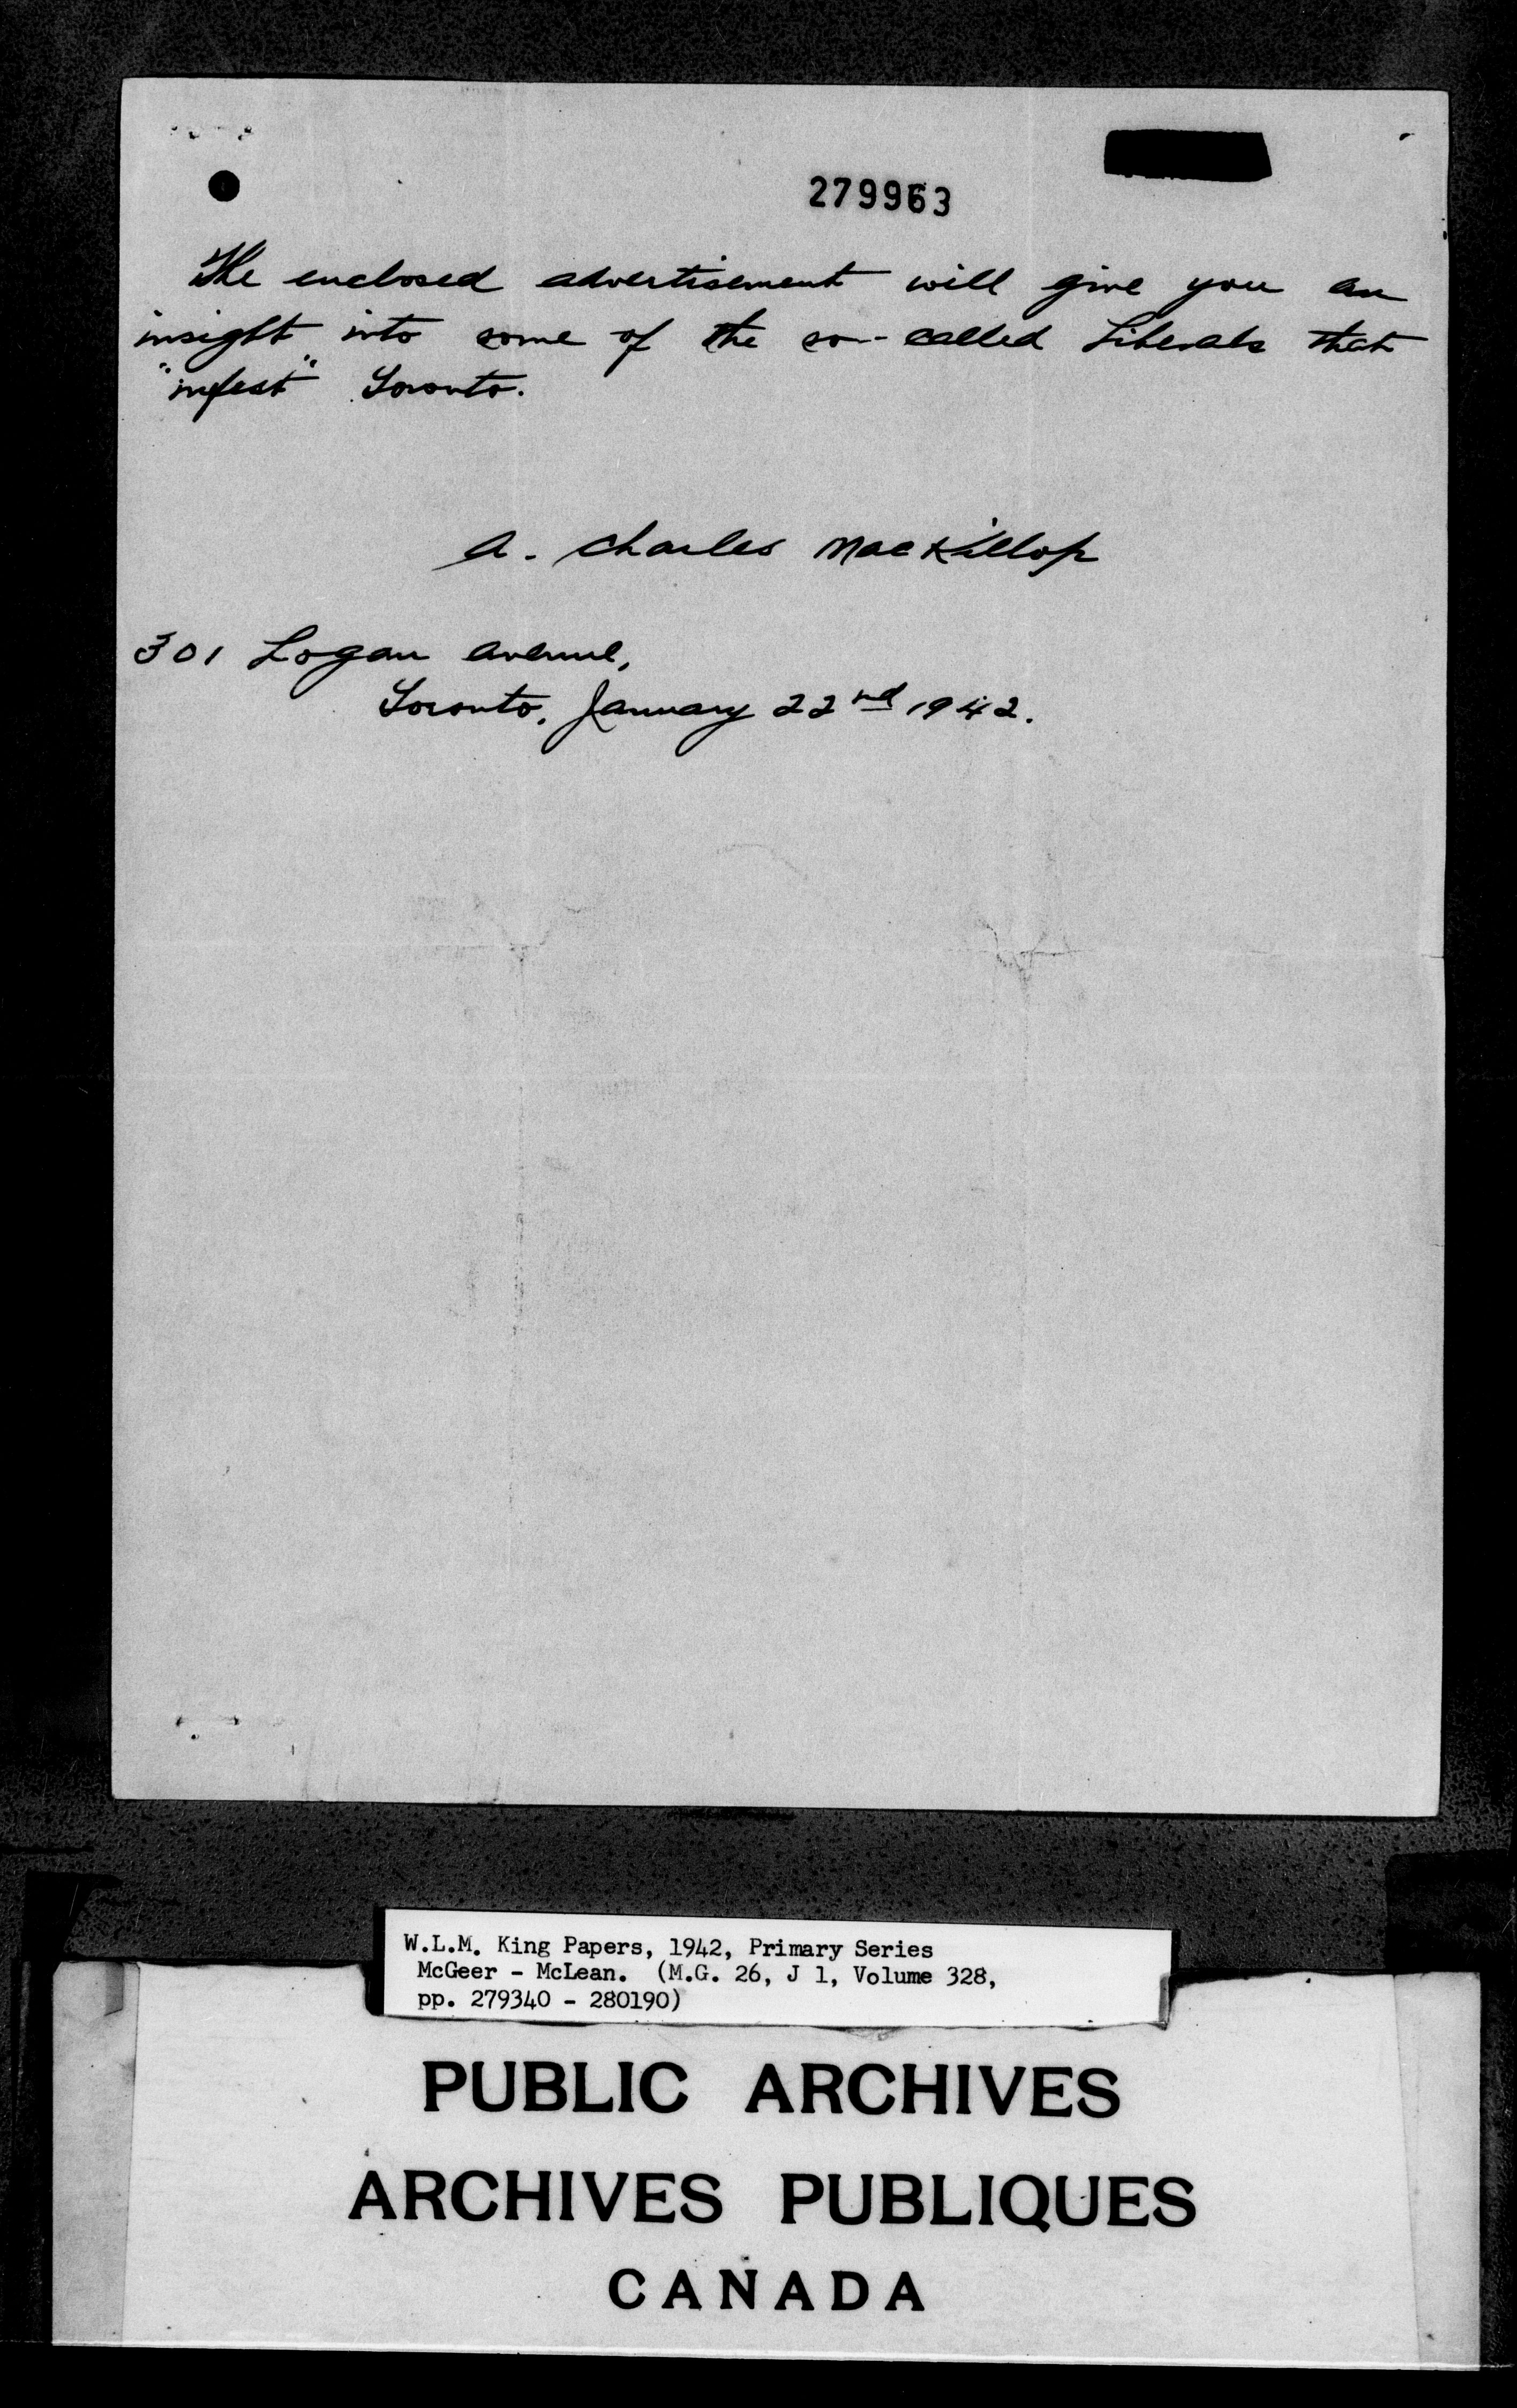 279963
The enclosed advertisement will give you an
insight into some of the so-called Liberals that
"infest" Toronto.
A. Charles MacKillop
301 Logan Avenue,
Toronto, January 22nd 1942.
W.L.M. King Papers, 1942, Primary Series
McGeer - McLean. (M.G. 26, J 1, Volume 328,
pp. 279340 - 280190)
PUBLIC ARCHIVES
ARCHIVES PUBLIQUES
CANADA